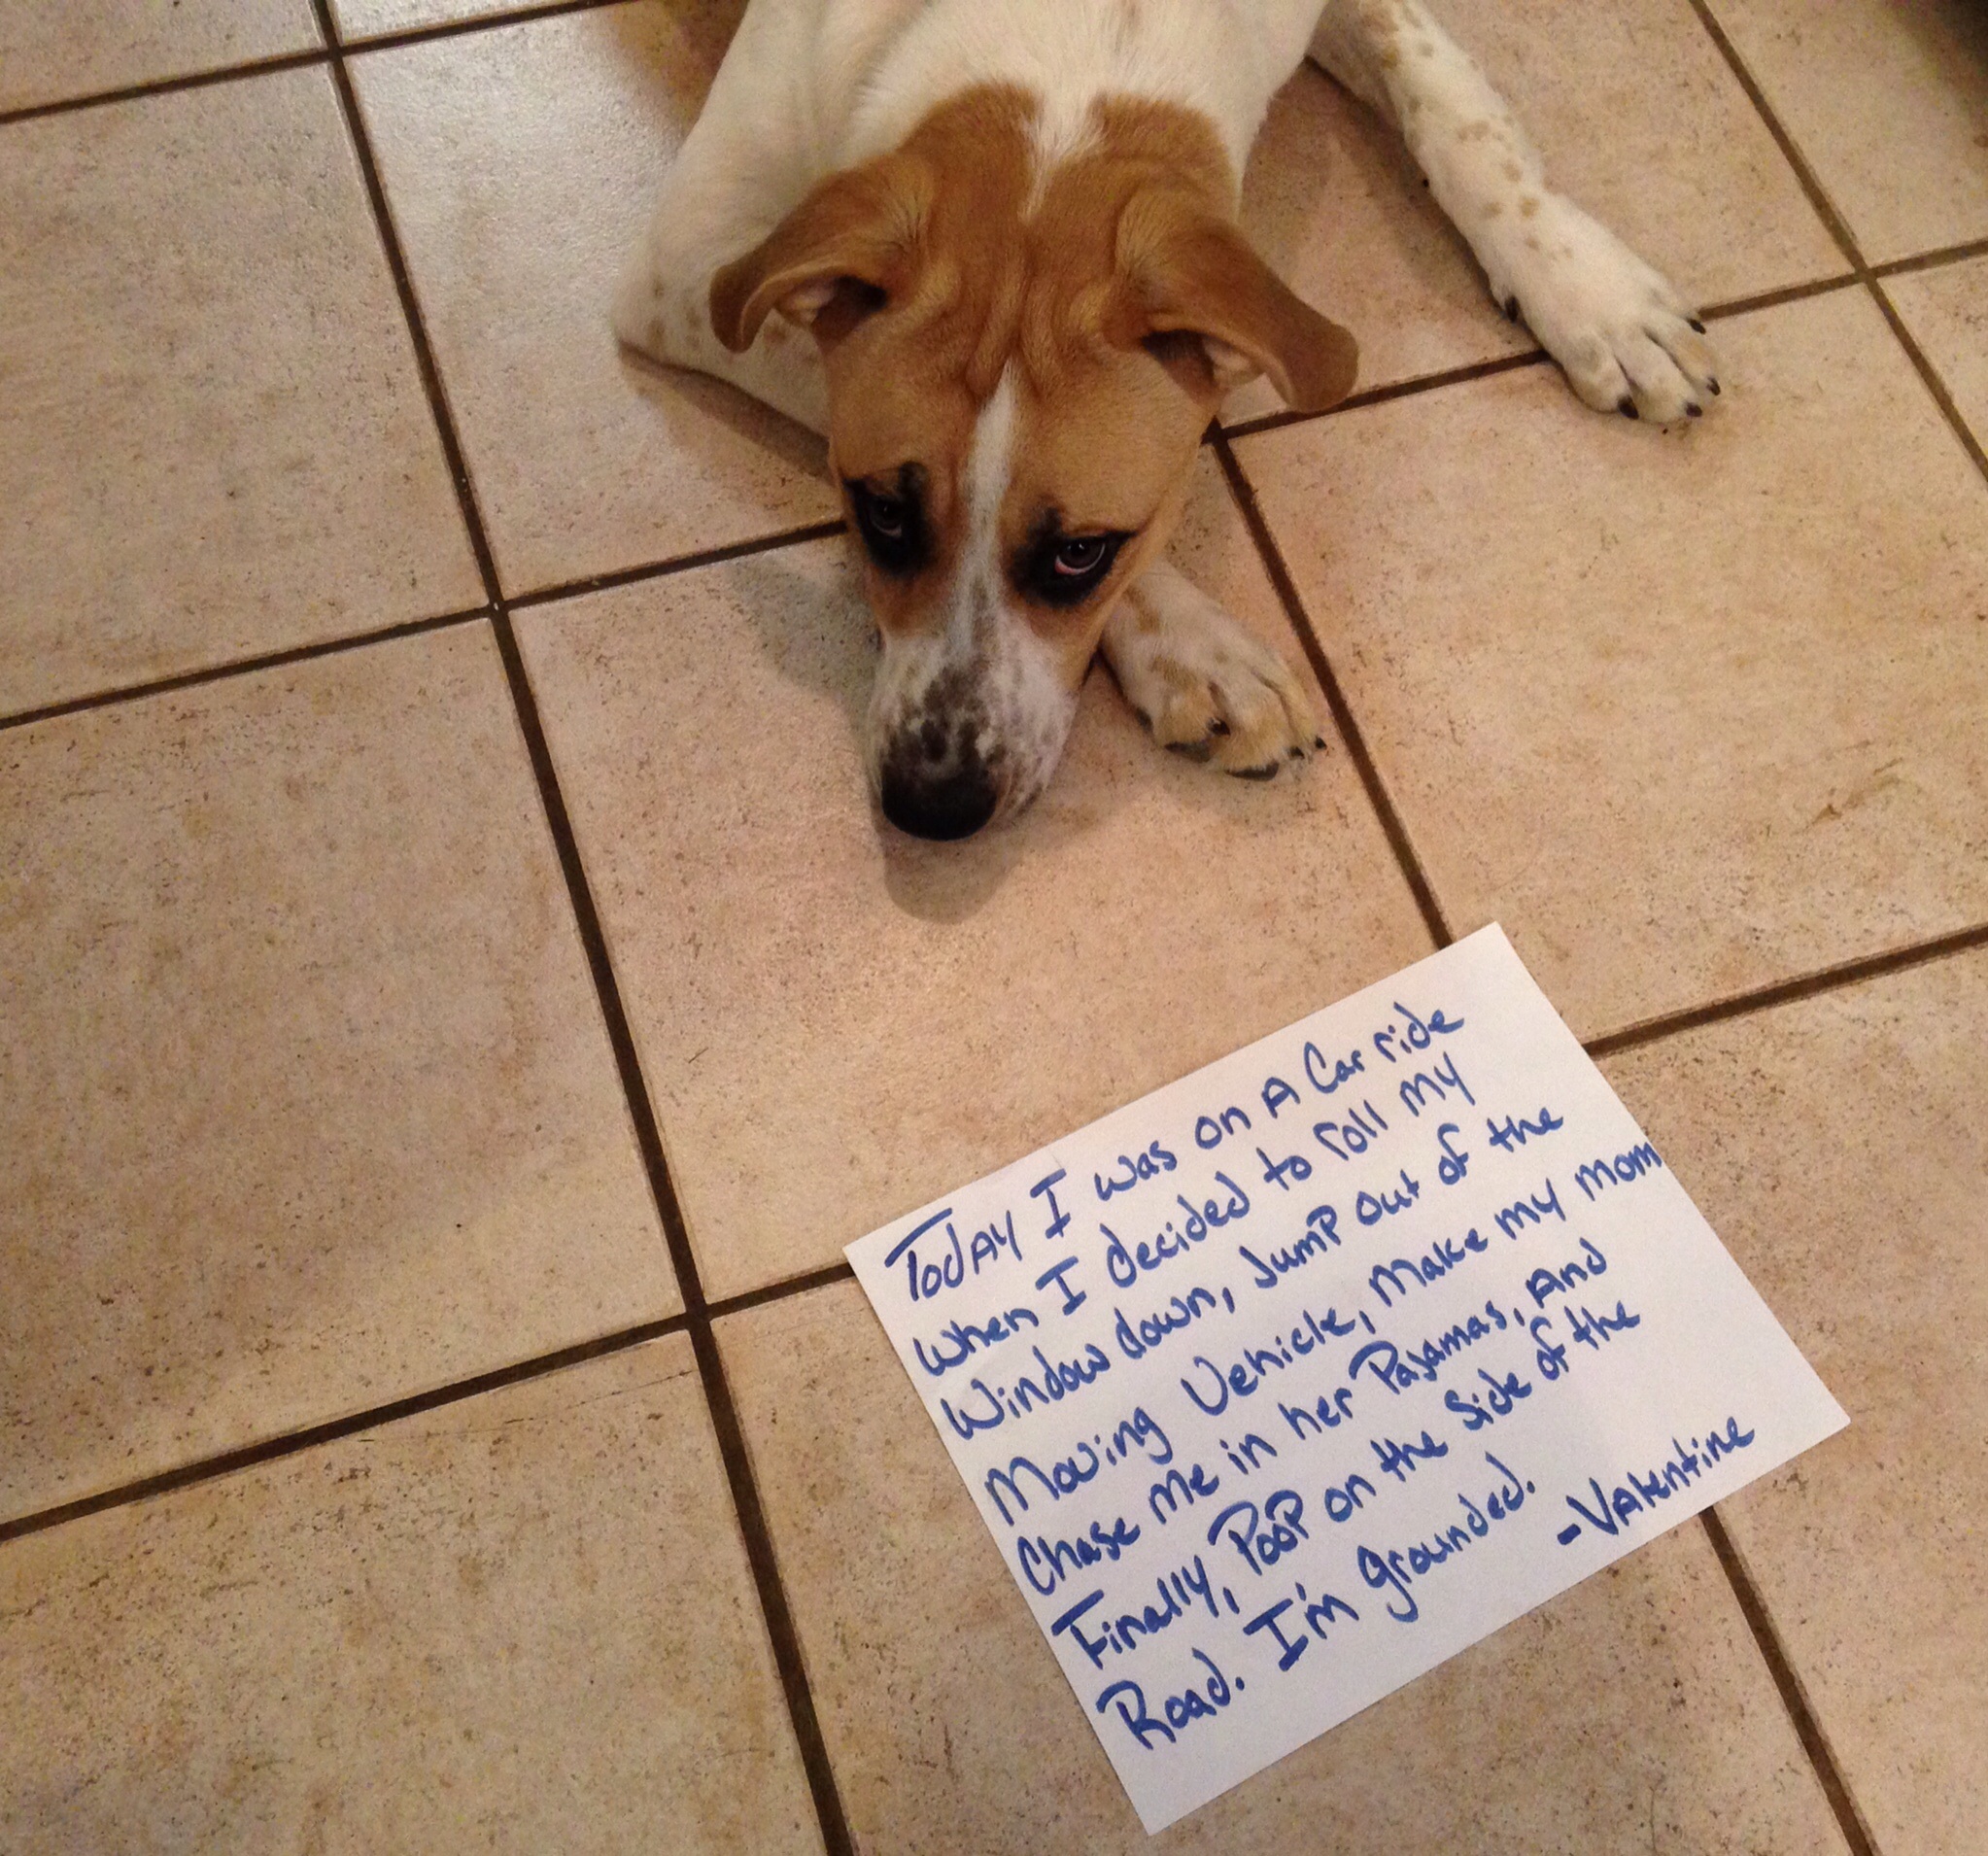 Today I was on A Car ride
when I decided to roll my
Window down, Jump out of the
Moving Vehicle, Make my mom
Chase Me in her Pajamas, And
Finally, Poop on the Side of the
Road. I'm grounded.
-Valentine